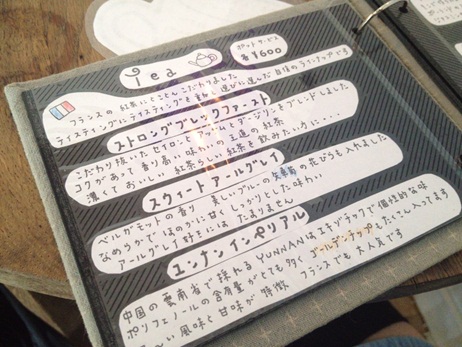 Tea
ポットサービス
各¥600
フランスの紅茶にとことんこだわりました
テイスティングにテイスティングを重ね選びに選んだ自慢のラインナップです
ストロングブレックファースト
こだわり抜いたセイロンとアッサムとダージリンをブレンドしました
コクがあって香り高い味わいの王道の紅茶
濃くておいしい紅茶らしい紅茶を飲みたい方に・・・
スウィートアールグレイ
ベルガモットの香り 美しいブルーの矢車菊の花びらも入れました
なめらかでほのかに甘くしっかりとした味わい
アールグレイ好きにはたまりません
ユンナンインペリアル
中国の雲南省で採れるYUNNANはエキゾチックで個性的な味
ポリフェノールの含有量がとても多くゴールデンチップもたくさん入ってます
い風味と甘味が特徴 フランスでも大人気です